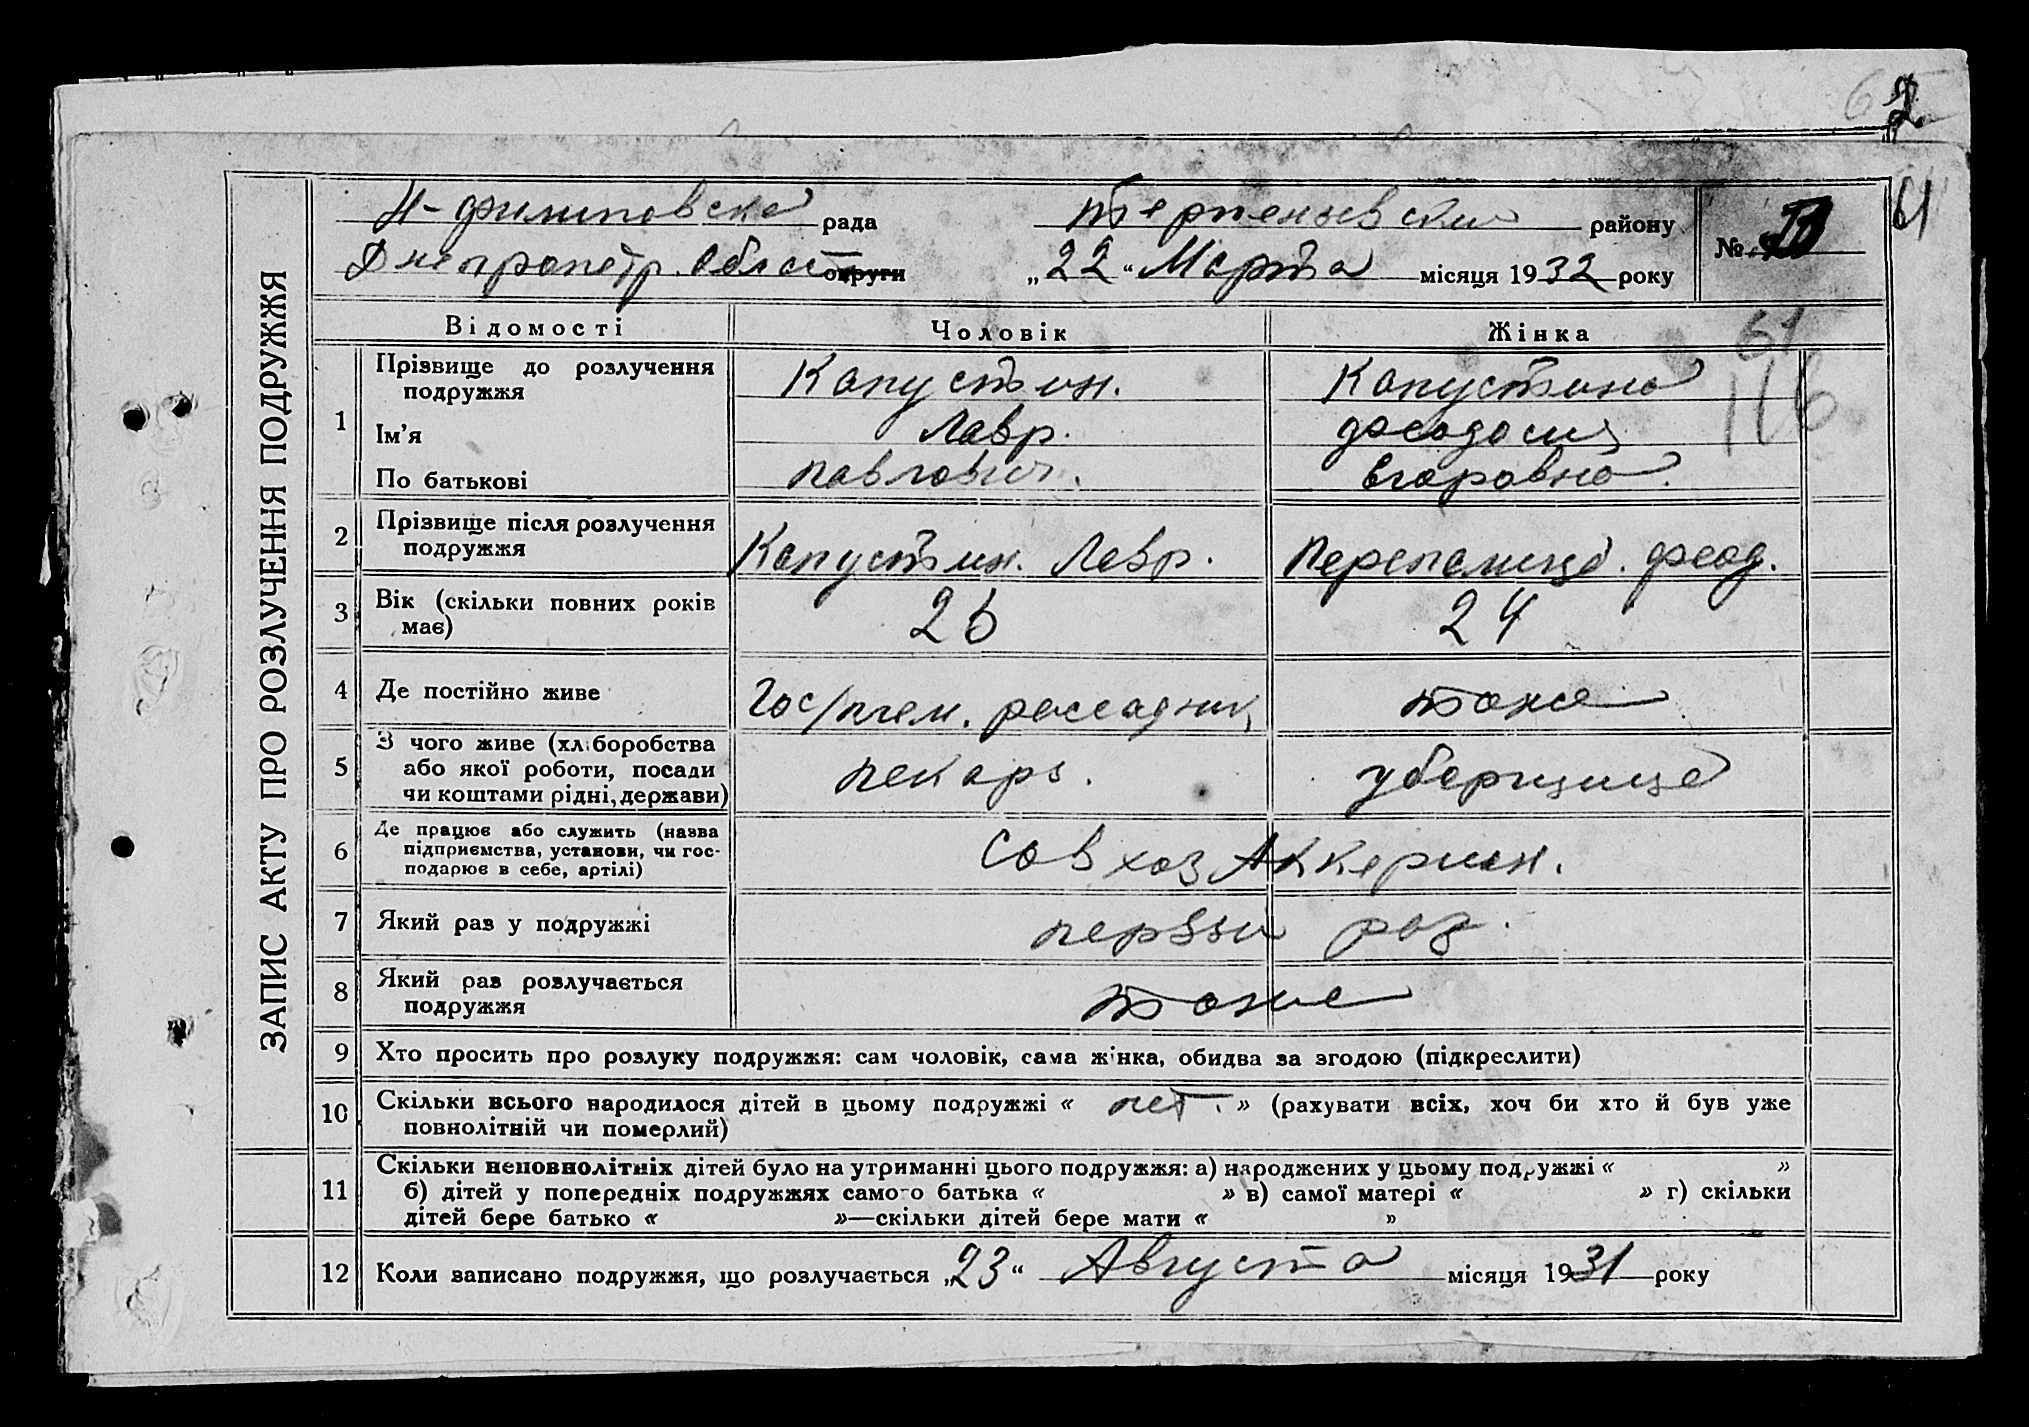 2
61
ЗАПИС АКТУ ПРО РОЗЛУЧЕННЯ ПОДРУЖЖЯ
Н-Филиповска рада Терпеньевски району №
Днепропетр. Област округи „22“ Марта місяця 1932 року
Відомості Чоловік Жінка
61
116
1 Прізвище до розлучення подружжя Капустин. Капустина
Ім’я Лавр. Феодосия
По батькові Павлович. Егоровна.
2 Прізвище після розлучення подружжя Капустин. Лавр. Перепелица. Феод.
3 Вік (скільки повних років має) 26 24
4 Де постійно живе Гос/плем. рассадник тоже
5 З чого живе (хліборобства або якої роботи, посади чи коштами рідні, держави) пекарь. уборщица
6 Де працює або служить (назва підприємства, установи, чи господарює в себе, артілі) Совхоз Аккермен.
7 Який раз у подружжі первый раз.
8 Який раз розлучається подружжя тоже
9 Хто просить про розлуку подружжя: сам чоловік, сама жінка, обидва за згодою (підкреслити)
10 Скільки всього народилося дітей в цьому подружжі « нет. » (рахувати всіх, хоч би хто й був уже
повнолітній чи померлий)
11 Скільки неповнолітніх дітей було на утриманні цього подружжя: а) народжених у цьому подружжі « »
б) дітей у попередніх подружжях самого батька « » в) самої матері « » г) скільки
дітей бере батько « »—скільки дітей бере мати « »
12 Коли записано подружжя, що розлучається „23“ Августа місяця 1931 року